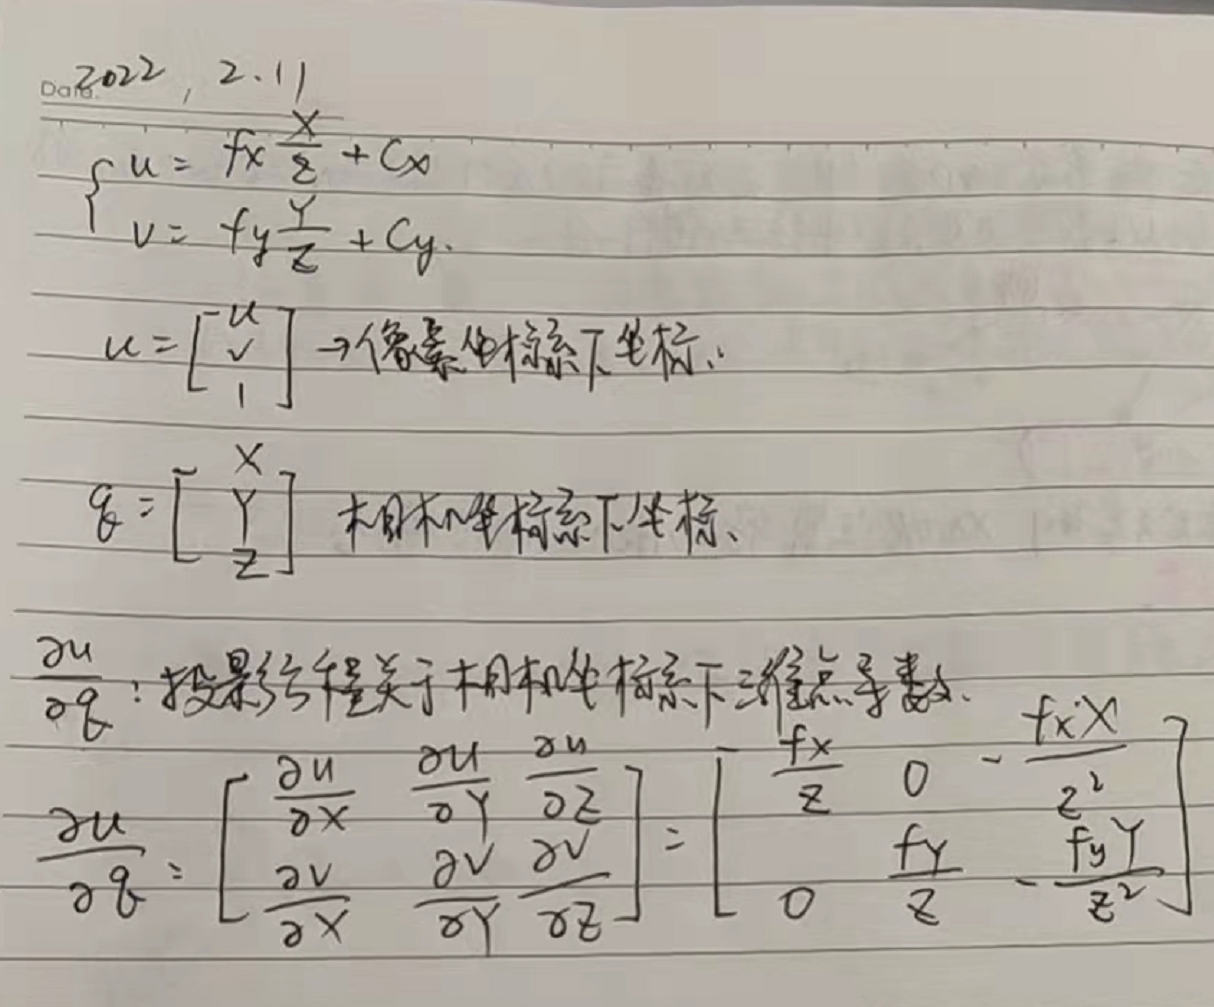 Date.2022, 2.11
{ u = fx X/Z + Cx
v = fy Y/Z + Cy.
u = [u v 1] → 像素坐标系下坐标.
q = [X Y Z] 相机坐标系下坐标、
∂u/∂q : 投影方程关于相机坐标系下三维点导数.
∂u/∂q = [∂u/∂X ∂u/∂Y ∂u/∂Z ∂v/∂X ∂v/∂Y ∂v/∂Z] = [fx/Z 0 -fxX/Z² 0 fy/Z -fyY/Z²]